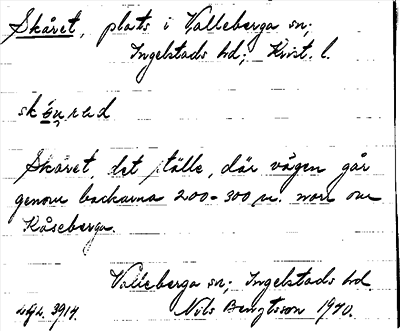 Skåret, plats i Valleberga sn;
Ingelstads hd; Krist. l.
Skåret, det ställe, där vägen går
genom backarna 200-300 m. norr om
Kåseberga.
Valleberga sn; Ingelstads hd.
Nils Bengtsson 1940.